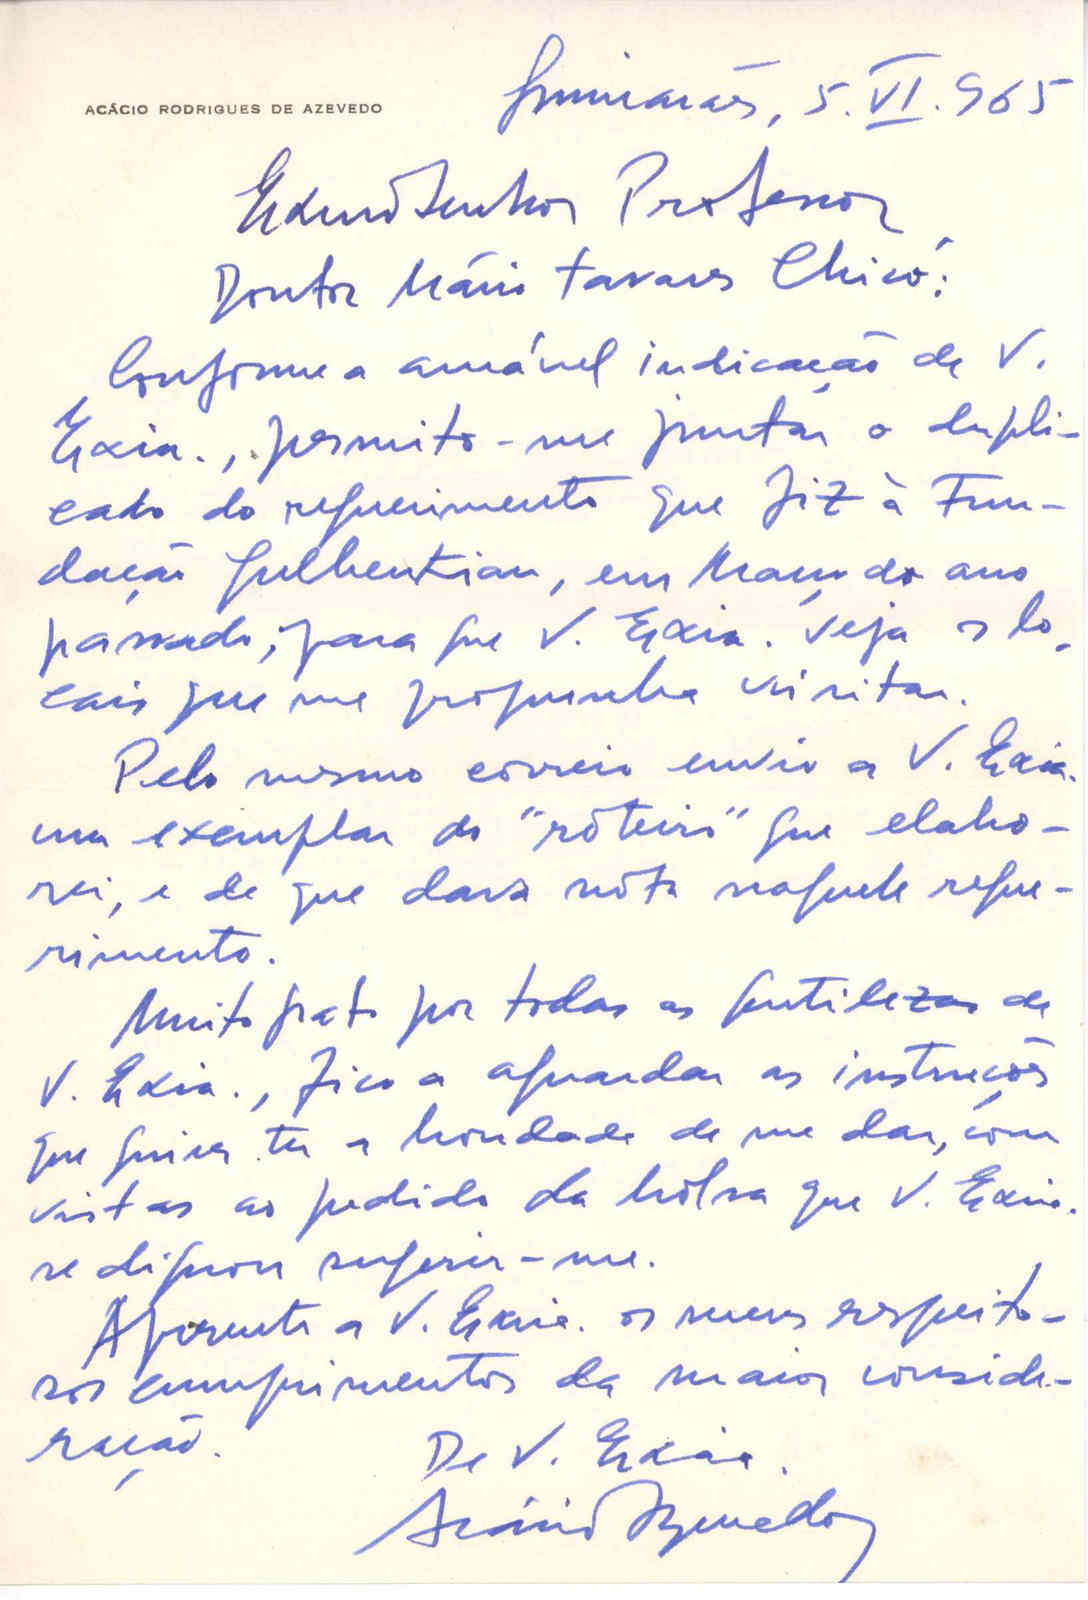 ACÁCIO RODRIGUES DE AZEVEDO
Guimarães, 5.VI.965
Exmo Senhor Professor
Doutor Mário Tavares Chicó:
Conforme a amável indicação de V.
Exia., permito-me juntar o dupli-
cado do requerimento que fiz à Fun-
dação Gulbenkian, em Março do ano
passado, para que V. Exia. veja os lo-
cais que me propunha visitar.
Pelo mesmo correio envio a V. Exia.
um exemplar do "rōteiro" que elabo-
rei, e de que dava nota naquele reque-
rimento.
Muito grato por todas as gentilezas de
V. Exia., fico a aguardar as instruções
que queira ter a bondade de me dar, com
vistas ao pedido da bôlsa que V. Exia.
se dignou sugerir-me.
Apresento a V. Exia. os meus respeito-
sos cumprimentos da maior conside-
ração.
De V. Exia.
Acácio Azevedo